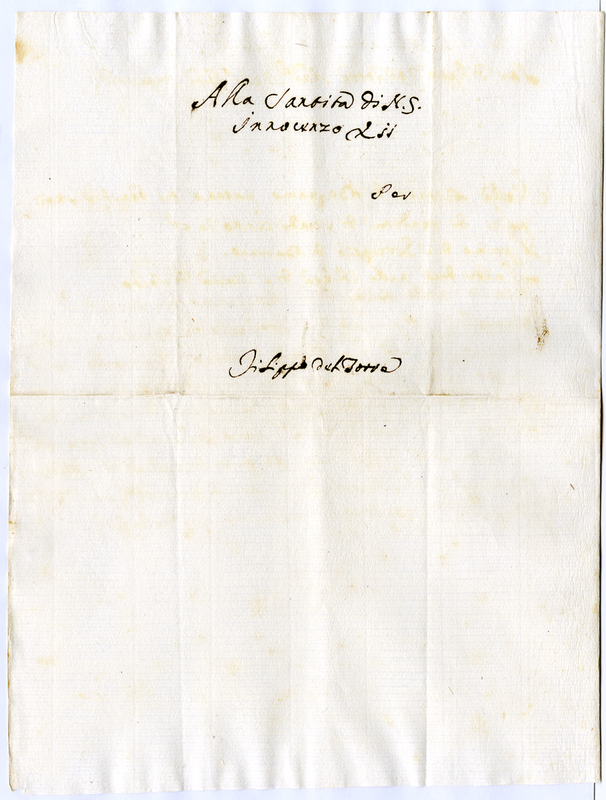 Alla Santità di N. S.
Innocenzo Xii
Per
Filippo del Torre